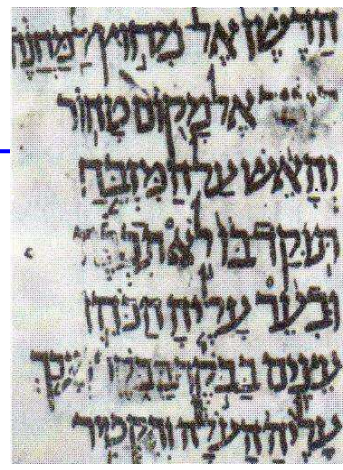 הדשן אל מחוץ למחנה
אל מקום טהור
והאש על המזבח
תוקד בו לא
ובער עליה הכהן
עצים בבקר בבקר
עליה העלה והקטיר